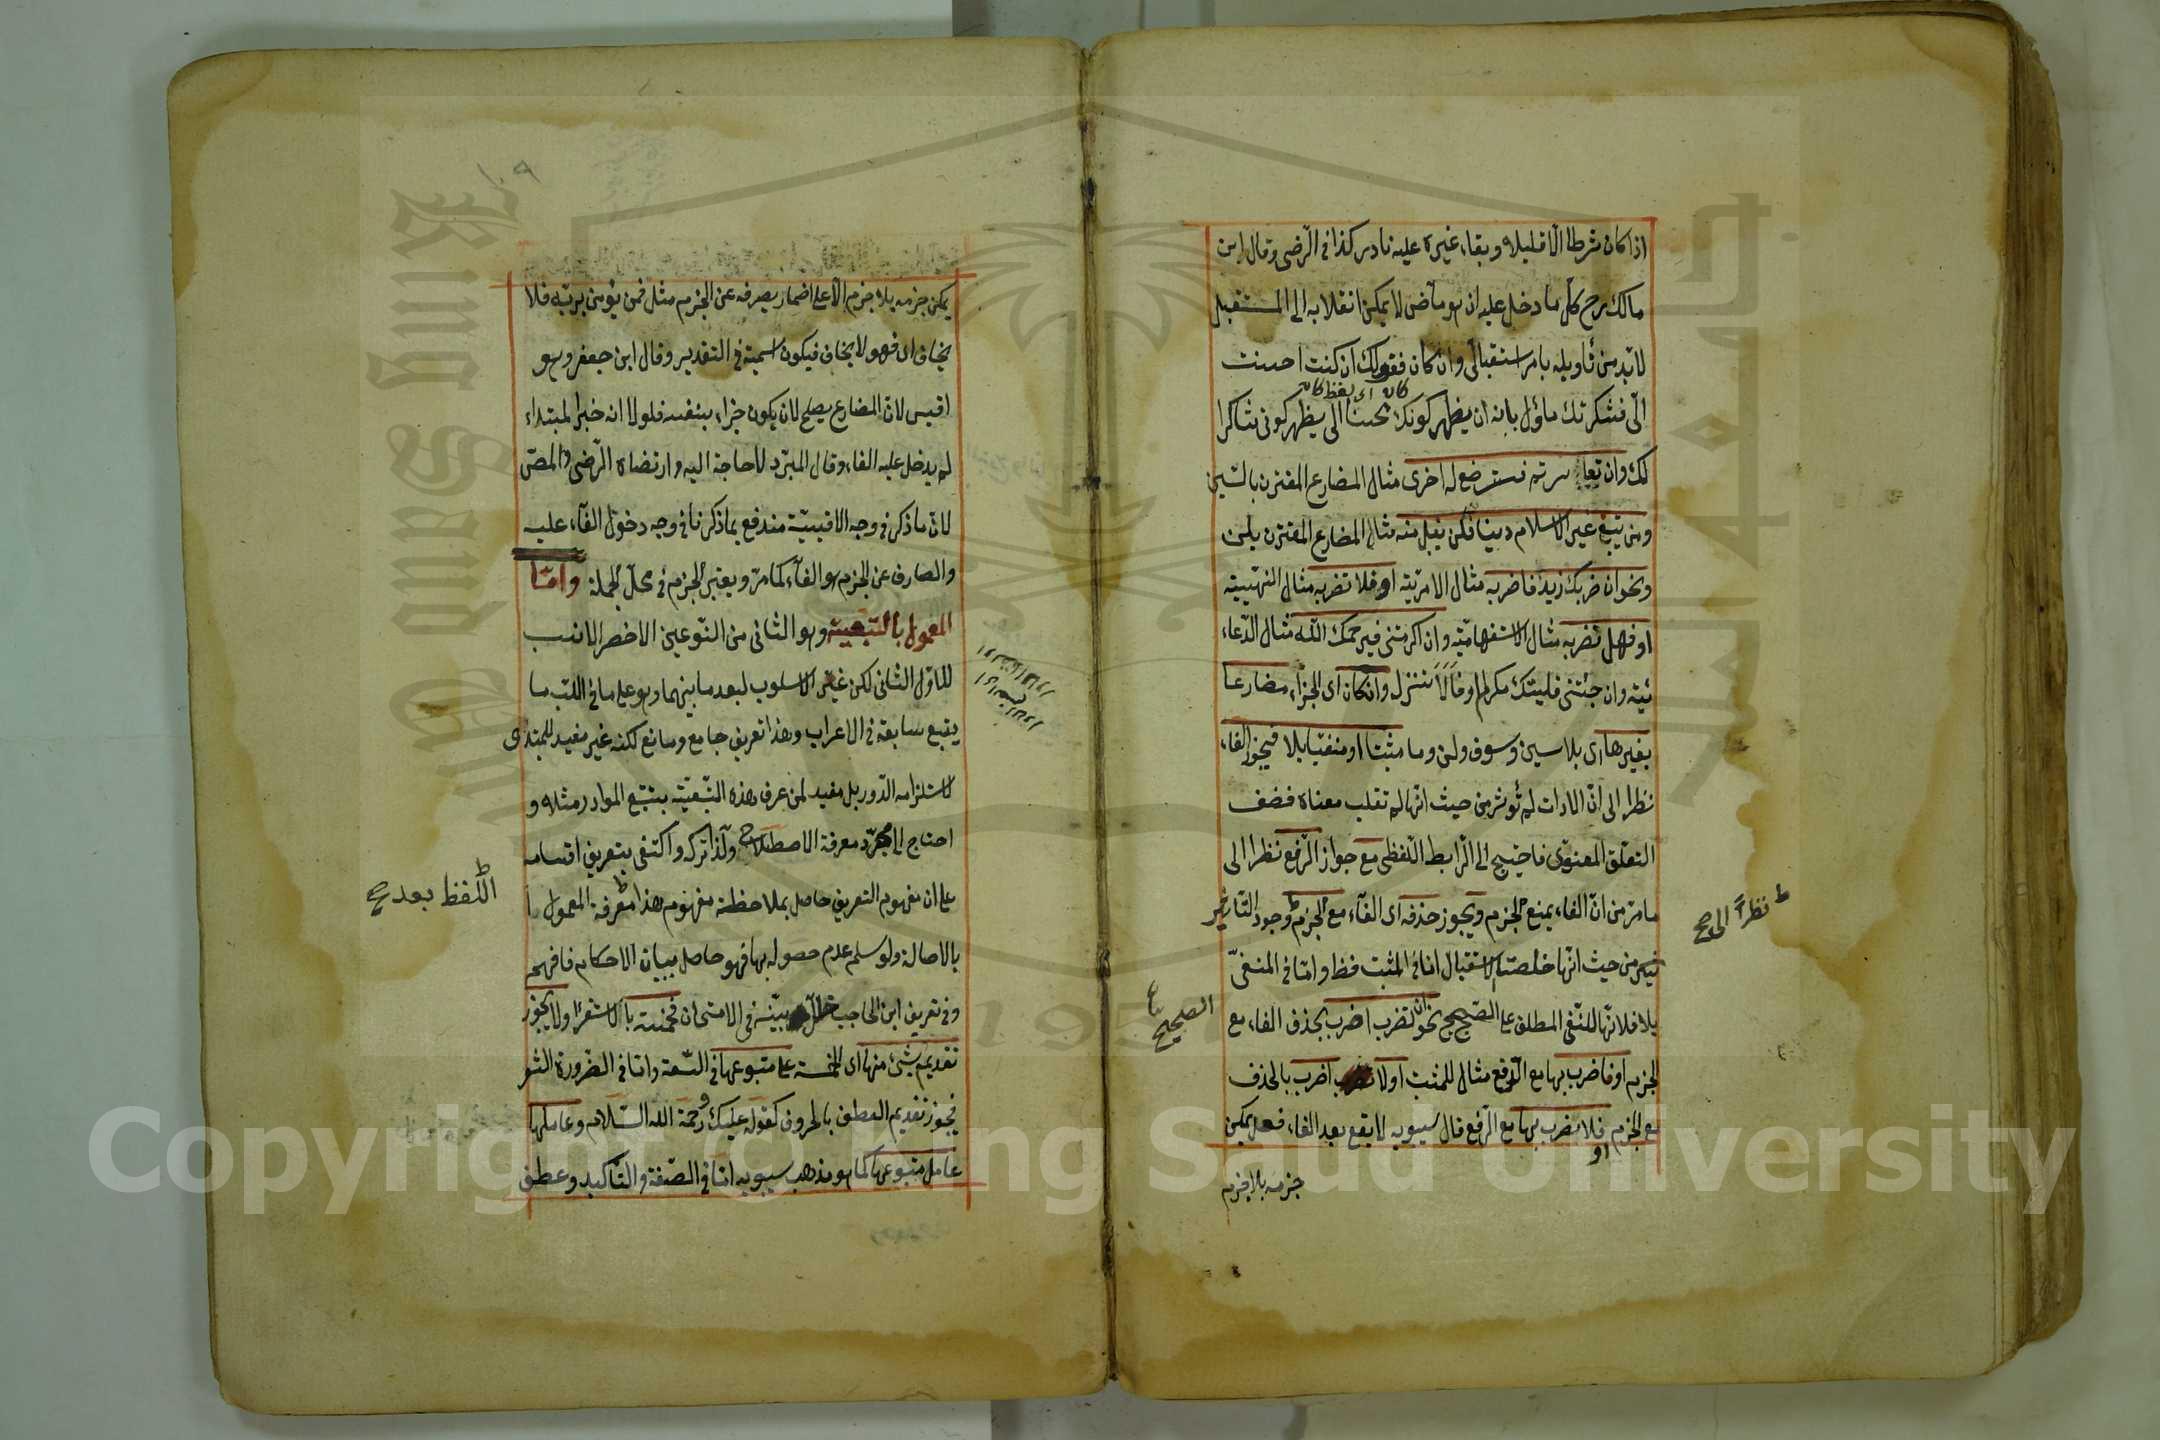 اذا كان شرطا الا قليلا وبقاء غيره عليه نادر كذا في الرضى وقال ابن
مالك رح كل ما دخل عليه ان وهو ماض لا يمكن انقلابه الى المستقبل
لابد من تأويله بامر استقبالى وان كان فقولك ان كنت احسنت
كان اى بلفظ كان
الى فشكرتك ماؤل بانه ان يظهر كونك محسنا الى يظهر كونى شاكرا
لك وان تعاسرتم فسترضع له اخرى مثال المضارع المقترن بالسين
ومن يبتغ غير الاسلام دينا فلن يقبل منه مثال المضارع المقترن بلن
ونحو ان ضربك زيد فاضربه مثال الامرية او فلا تضربه مثال النهيية
او فهل تضربه مثال الاستفهامية وان اكرمتنى فيرحمك الله مثال الدعا
ئية وان جئتنى فليتك مكرم او فالا تنزل وان كان اى الجزاء مضارعا
بغيرها اى بلا سين وسوف ولن وما مثبتا او منفيا بلا فيجوز الفاء
نظرا الى ان الادات لم تؤثر من حيث انها لم تقلب معناه فضعف
التعلق المعنوى فاحتيج الى الرابط اللفظى مع جواز الرفع نظرا الى
ما مر من ان الفاء يمنع الجزم ويجوز حذفه اى الفاء مع الجزم وجود التاثير
نظرا الى صح
فيه من حيث انها خلصته للاستقبال اما في المثبت فظ واما في المنفى
بلا فلانها للنفى المطلق على الصحيح نحو ان تضرب اضرب بحذف الفاء مع
الصحيح
الجزم او فاضرب بها مع الرفع مثال للمثبت او لا اضرب بالحذف
مع الجزم او فلا نضرب بها مع الرفع قال سيبويه لا يقع بعد الفاء فعل يمكن
جزمه بلا جزم
يمكن جزمه بلا جزم الا على اضمار يصرفه عن الجزم مثل فمن يؤمن بربه فلا
يخاف اى فهو لا يخاف فيكون اسمية في التقدير وقال ابن جعفر وهو
اقيس لان المضارع يصلح لان يكون جزاء بنفسه فلولا انه خبر المبتداء
لم يدخل عليه الفاء وقال المبرد لا حاجة اليه وارتضاه الرضى والمص
لان ما ذكر في وجه الاقيسية مندفع بما ذكرنا في وجه دخول الفاء عليه
والصارف عن الجزم هو الفاء كما مر ويعتبر الجزم في محل الجملة واما
المعمول بالتبعية وهو الثانى من النوعين الاخصر الانسب
للاول الثانى لكن غير الاسلوب لبعد ما بينهما وهو على ما في اللب ما
يتبع سابقه في الاعراب وهذا تعريف جامع ومانع لكنه غير مفيد للمبتدى
لاستلزامه الدور بل مفيد لمن عرف هذه التبعية بتتبع الموادر مثلا و
احتاج الى مجرد معرفة الاصطلاح ولذا تركه واكتفى بتعريف اقسامه
على ان مفهوم التعريف حاصل بملاحظة مفهوم هذا معرفة المعمول
اللفظ بعد صح
بالاصالة ولو سلم عدم حصوله بها فهو حاصل ببيان الاحكام فافهم
وفي تعريف ابن الحاجب خلل بينته في الامتحان فخمسة بالاستقراء ولا يجوز
تقديم شئ منها اى الخمسة على متبوعها في السعة واما في الضرورة الشعر
فيجوز تقديم العطف بالحروف كقوله عليك ورحمة الله السلام وعاملها
عامل متبوعها كما هو مذهب سيبويه اما في الصفة والتاكيد وعطف
Copyright © King Saud University
1957